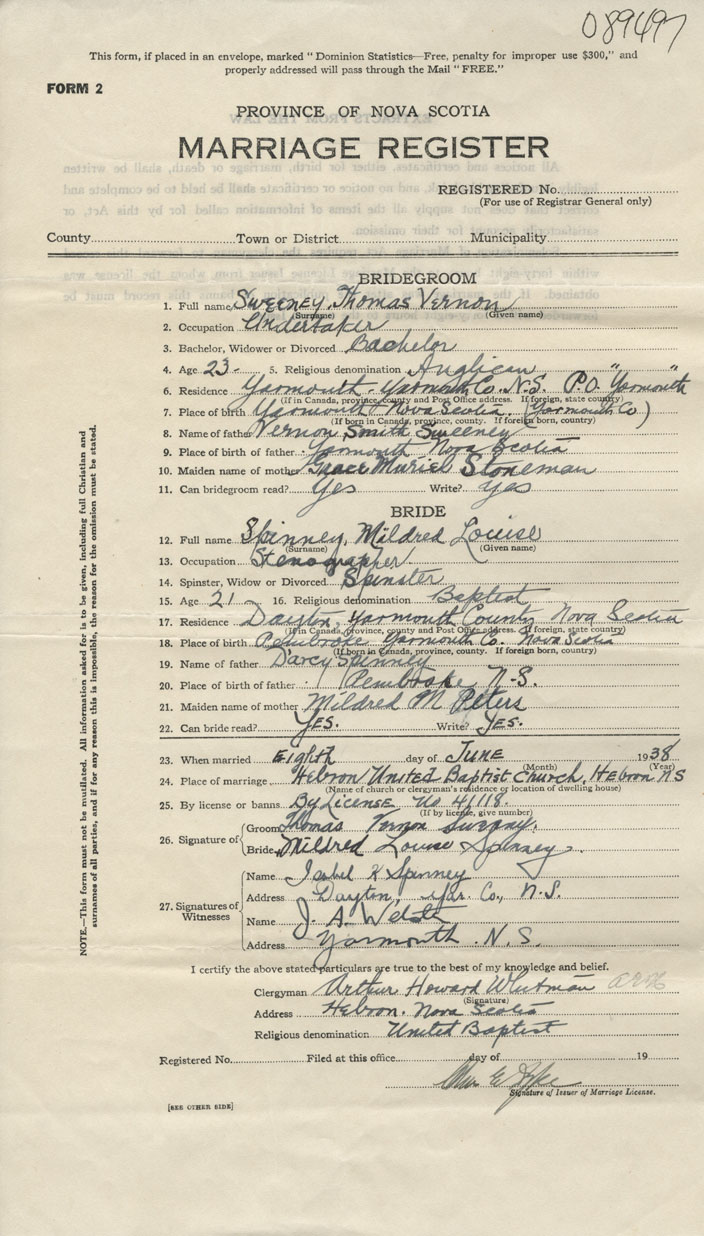 089497
This form, if placed in an envelope, marked "Dominion Statistics—Free, penalty for improper use $300," and
properly addressed will pass through the Mail "FREE."
FORM 2
PROVINCE OF NOVA SCOTIA
MARRIAGE REGISTER
REGISTERED No.
(For use of Registrar General only)
County Town or District Municipality
BRIDEGROOM
1. Full name Sweeney, Thomas Vernon
(Surname) (Given name)
2. Occupation Undertaker
3. Bachelor, Widower or Divorced Bachelor
4. Age 23- 5. Religious denomination Anglican
6. Residence Yarmouth - Yarmouth Co. N.S. P.O. "Yarmouth"
(If in Canada, province, county and Post Office address. If foreign, state country)
7. Place of birth Yarmouth Nova Scotia. (Yarmouth Co)
(If born in Canada, province, county. If foreign born, country)
8. Name of father Vernon Smith Sweeney
9. Place of birth of father Yarmouth Nova Scotia
10. Maiden name of mother Grace Muriel Stoneman
11. Can bridegroom read? Yes Write? Yes
BRIDE
12. Full name Spinney, Mildred Louise
(Surname) (Given name)
13. Occupation Stenographer
14. Spinster, Widow or Divorced Spinster
15. Age 21 16. Religious denomination Baptist
17. Residence Dayton, Yarmouth County Nova Scotia
(If in Canada, province, county and Post Office address. If foreign, state country)
18. Place of birth Pembroke Yarmouth Co. Nova Scotia
(If born in Canada, province, county. If foreign born, country)
19. Name of father Darcy Spinney
20. Place of birth of father Pembroke N.S.
21. Maiden name of mother Mildred M Peters
22. Can bride read? YES. Write? YES.
23. When married Eighth day of JUNE 1938
(Month) (Year)
24. Place of marriage Hebron United Baptist Church, Hebron NS
(Name of church or clergyman's residence or location of dwelling house)
25. By license or banns By License No 41118.
(If by license, give number)
26. Signature of
Groom Thomas Vernon Sweeney.
Bride Mildred Louise Spinney.
27. Signatures of Witnesses
Name Isabel K Spinney
Address Dayton, Yar. Co., N.S.
Name J. A. Welsh
Address Yarmouth. N.S.
I certify the above stated particulars are true to the best of my knowledge and belief.
Clergyman Arthur Howard Whitman
(Signature)
Address Hebron. Nova Scotia
Religious denomination United Baptist
Registered No. Filed at this office day of 19
Signature of Issuer of Marriage License.
[SEE OTHER SIDE]
NOTE.—This form must not be mutilated. All information asked for is to be given, including full Christian and
surnames of all parties, and if for any reason this is impossible, the reason for the omission must be stated.